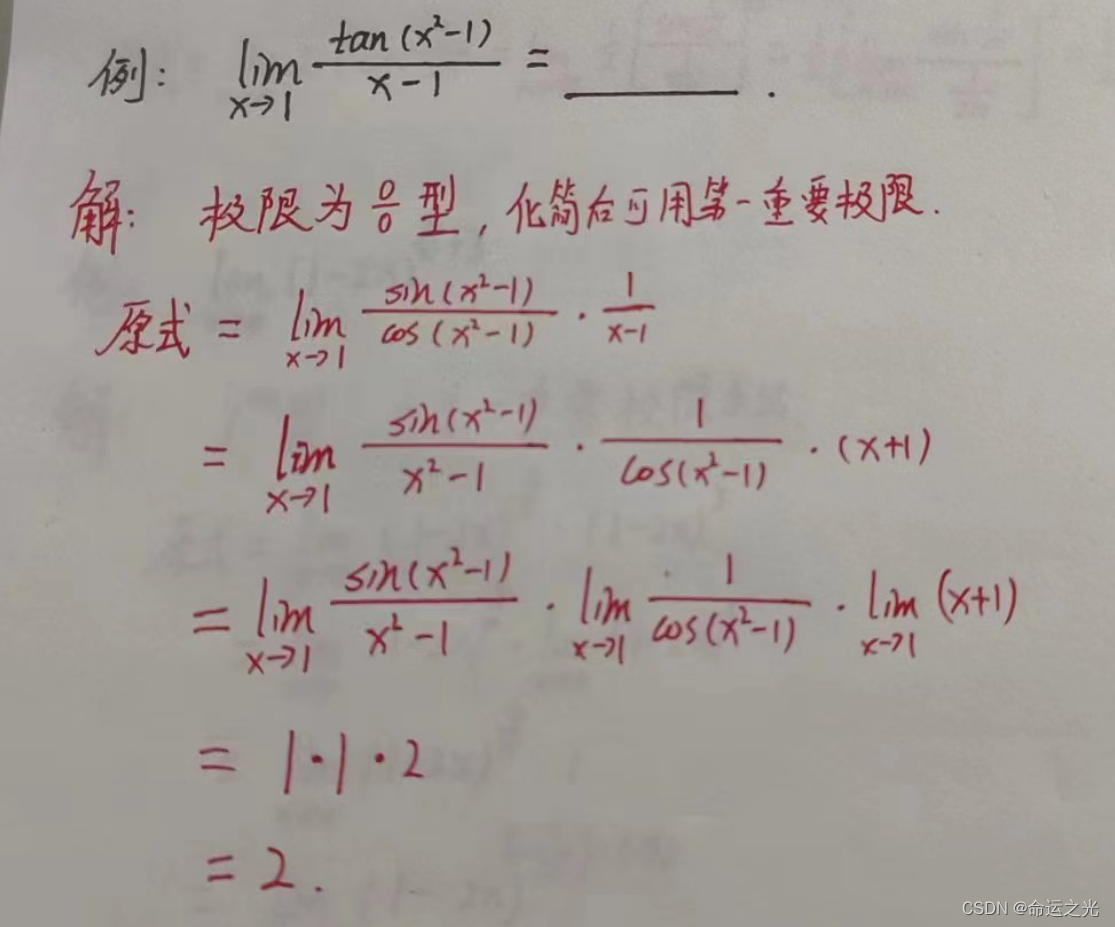 例: lim x→1 tan(x²-1) / x-1 = ______ .
解: 极限为 0/0 型, 化简后可用第一重要极限.
原式 = lim x→1 sin(x²-1) / cos(x²-1) · 1 / x-1
= lim x→1 sin(x²-1) / x²-1 · 1 / cos(x²-1) · (x+1)
= lim x→1 sin(x²-1) / x²-1 · lim x→1 1 / cos(x²-1) · lim x→1 (x+1)
= 1·1·2
= 2.
CSDN @命运之光